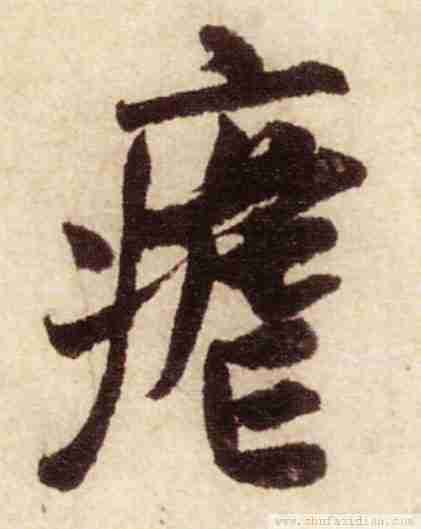 瘧
www.shufazidian.com